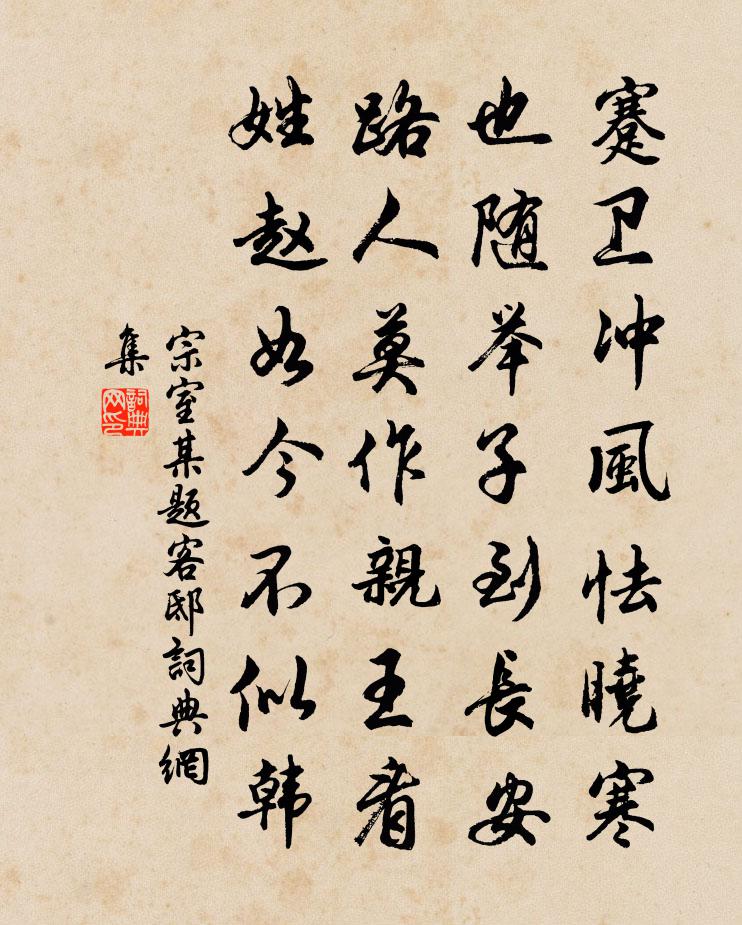 蹇卫冲風怯曉寒
也随举子到長安
路人莫作親王看
姓赵如今不似韩
宗室某题客邸詞典網
集
詞典網印